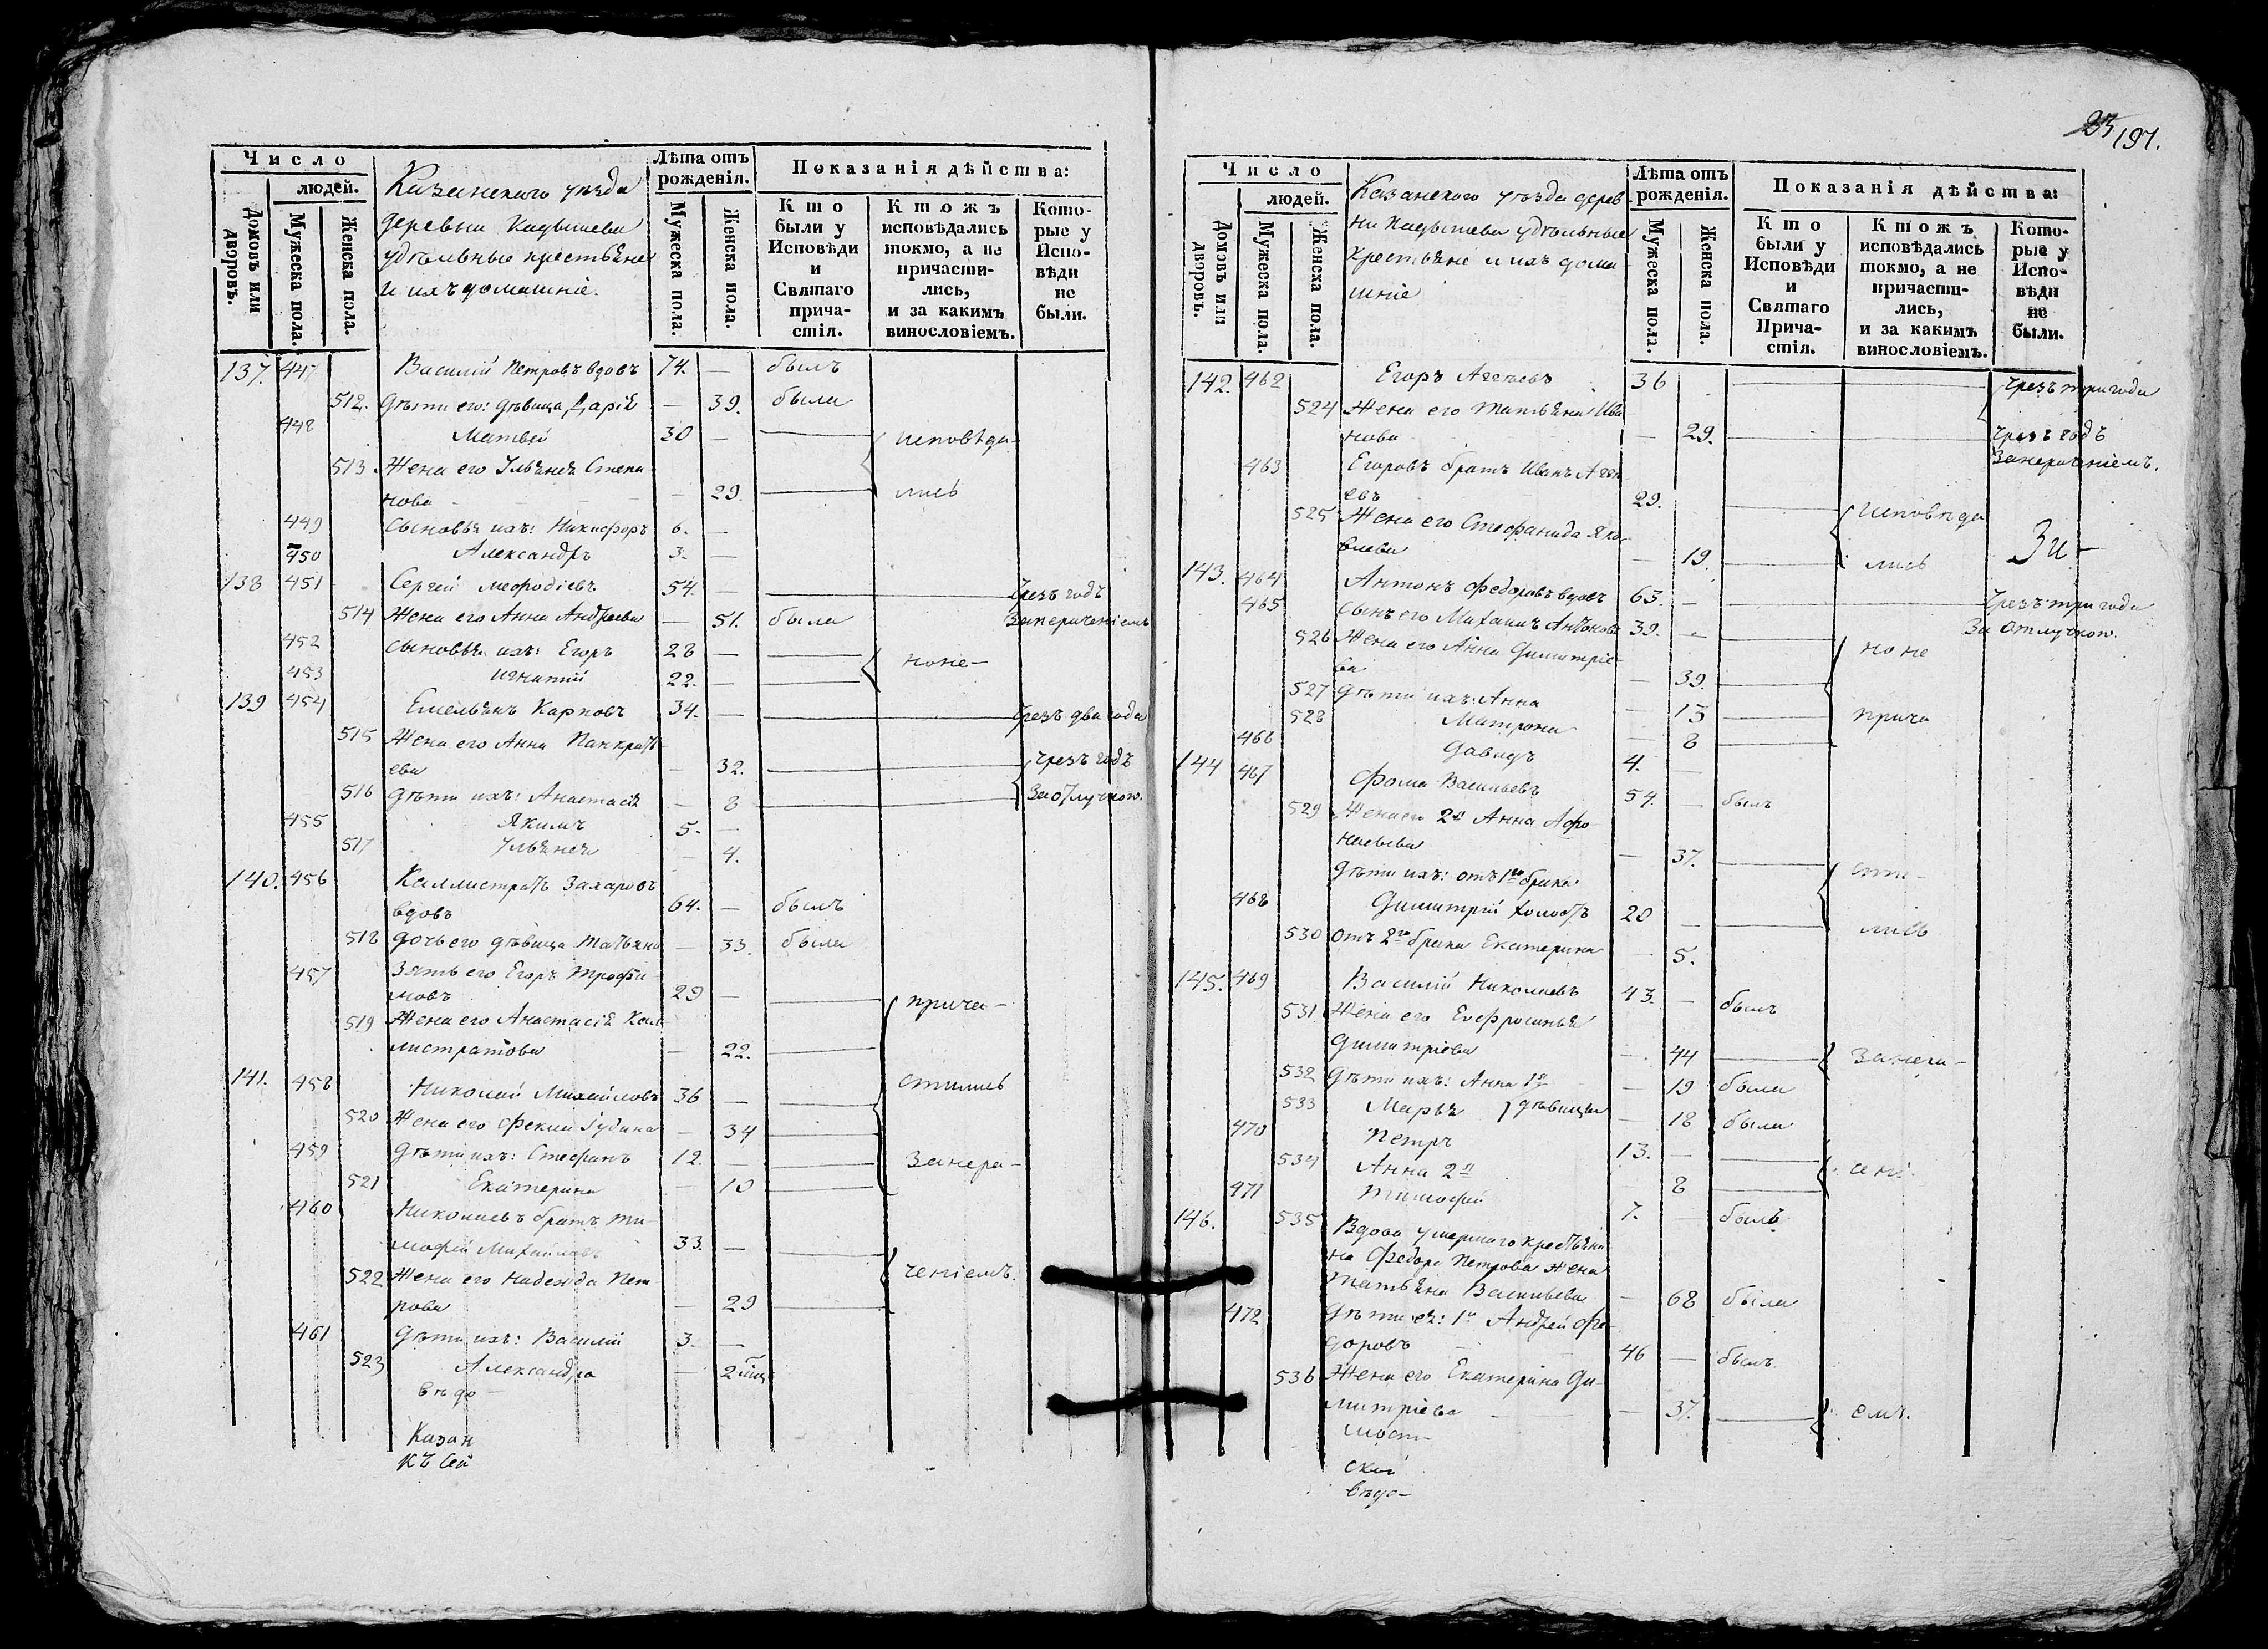 Число
людей.
Домовъ или дворовъ.
Мужеска пола.
Женска пола.
Казанского уѣзда
деревни Кадышева
удѣльные крестьяне
и ихъ домашніе.
Лѣта отъ рожденія.
Мужеска пола.
Женска пола.
Показанія дѣйства:
Кто были у Исповѣди и Святаго причастія.
Ктожъ исповѣдались токмо, а не причастились, и за какимъ винословіемъ.
Которые у Исповѣди не были.
137. 447 Василій Петровъ вдовъ 74. — былъ
512. дѣти его: дѣвица Дарія — 39. была
448 Матвей 30 — исповѣда-
513. Жена его Ульяна Степа
нова — 29. лись
449 Сыновья ихъ: Никифоръ 6. —
450 Александръ 3. —
138 451 Сергей Мефодіевъ 54. — Чрезъ годъ
514 Жена его Анна Андреева — 51. была Занерачениемъ
452 Сыновья ихъ: Егоръ 28 — но не-
453 Игнатій 22. —
139 454 Емельянъ Карповъ 34. — Чрезъ два года
515 Жена его Анна Панкрать
ева — 32. Чрезъ годъ
516 дѣти ихъ: Анастасія — 8 За отлучкою.
455 Якимъ 5. —
517 Ульяна — 4.
140. 456 Каллистратъ Захаровъ
вдовъ 64. — былъ
518 дочь его дѣвица Татьяна — 33. была
457 Зять его Егоръ Трофи
мовъ 29 — прича-
519 Жена его Анастасія Кал
листратова — 22.
141. 458 Николай Михайловъ 36 — стились
520 Жена его Фекла Гудина — 34
459 Дѣти ихъ: Стефанъ 12. — Занера-
521 Екатерина — 10
460 Николаевъ братъ Ти-
мофей Михайловъ 33. —
522 Жена его Надежда Пет
рова — 29 ченіемъ.
461 Дѣти ихъ: Василій 3. —
523 Александра — 2
вѣдо-
Казан
Къ сей
197.
Число
людей.
Домовъ или дворовъ.
Мужеска пола.
Женска пола.
Казанского уѣзда дерев
ни Кадышева удѣльные
Крестьяне и ихъ дома
шніе
Лѣта отъ рожденія.
Мужеска пола.
Женска пола.
Показанія дѣйства:
Кто были у Исповѣди и Святаго Причастія.
Ктожъ исповѣдались токмо, а не причастились, и за какимъ винословіемъ.
Которые у Исповѣди не были.
142. 462 Егоръ Агеевъ 36 Чрезъ три года
524 Жена его Татьяна Ива
нова — 29. Чрезъ годъ
Занерачениемъ.
463 Егоровъ братъ Иванъ Аге
евъ 29. исповѣда
525 Жена его Стефанида Яко-
влева — 19. лись
143. 464 Антонъ Федоровъ вдовъ 63. — Чрезъ три года
За отлучкою.
465 Сынъ его Михаилъ Антоновъ 39. — но не
526 Жена его Анна Димитріе-
ва — 39.
527 Дѣти ихъ: Анна — 13 прича
528 Матрона — 8
466 Давидъ 4. —
144 467 Фома Васильевъ 54. — былъ
529 Жена его 2я Анна Афо-
насьева — 37. сти-
Дѣти ихъ: отъ 1го брака
468 Димитрій холостъ 20 — лись
530 отъ 2го брака Екатерина — 5.
145. 469 Василій Николаевъ 43. — былъ
531 Жена его Евфросинья
Димитріева — 44 Занера-
532 Дѣти ихъ: Анна 1я — 19 была
533 Марья дѣвицы — 18 была
470 Петръ 13. —
534 Анна 2я 8 чені-
471 Тимофей 7. — былъ
146. 535 Вдова умершаго крестьяни
на Федора Петрова жена
Татьяна Васильева — 68 была
472 Дѣти ея: 1й Андрей Фе-
доровъ 46 — былъ
536 Жена его Екатерина Ди-
митріева — 37. емъ.
мости
ской
вѣдо-